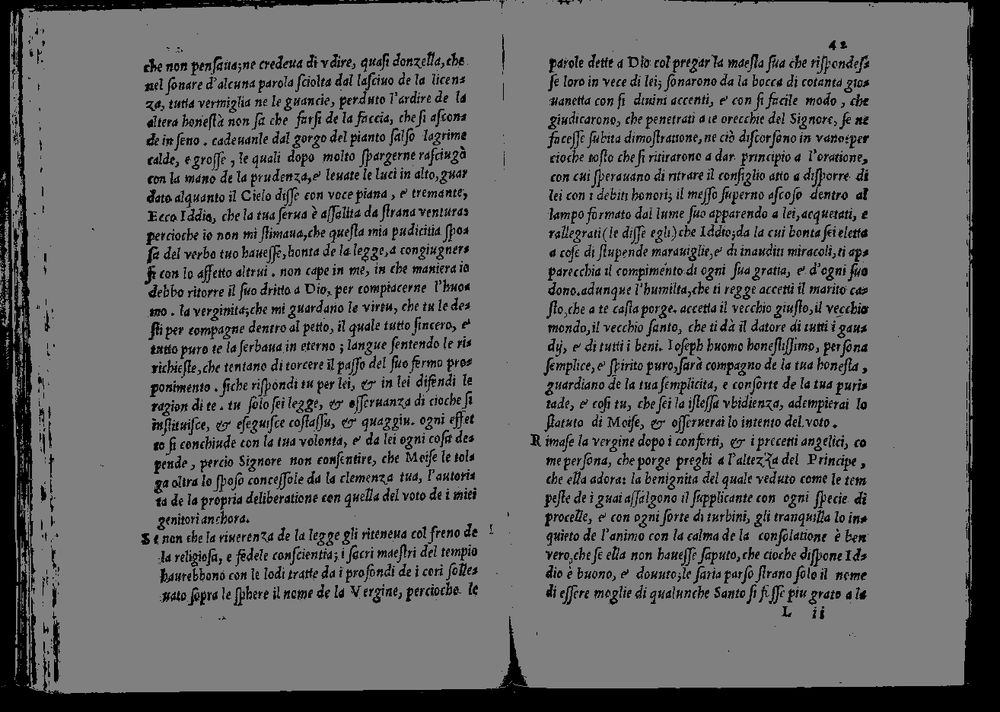 che non pensaua; ne credeua di vdire, quasi donzella, che
nel sonare d'alcuna parola sciolta dal lasciuo de la licen=
za, tutta vermiglia ne le guancie, perduto l'ardire de la
altera honestà non sa che farsi de la faccia, che si ascon=
de in seno. cadeuanle dal gorgo del pianto salso lagrime
calde, e grosse, le quali dopo molto spargerne rasciugà
con la mano de la prudenza, e leuate le luci in alto, guar
dato alquanto il Cielo disse con voce piana, e tremante,
Ecco Iddio, che la tua serua è assalita da strana ventura:
percioche io non mi stimaua, che questa mia pudicitia spo=
sa del verbo tuo hauesse, honta de la legge, a congiugner=
si con lo affetto altrui. non cape in me, in che maniera io
debbo ritorre il suo dritto a Dio, per compiacerne l'huo=
mo. la verginita; che mi guardano le virtu, che tu le de=
sti per compagne dentro al petto, il quale tutto sincero, e
tutto puro te la serbaua in eterno; langue sentendo le ri=
richieste, che tentano di torcere il passo del suo fermo pro=
ponimento. siche rispondi tu per lei, & in lei difendi le
ragion di te. tu solo sei legge, & osseruanza di cioche si
instituisce, & eseguisce costassu, & quaggiu. ogni effet
to si conchiude con la tua volonta, e da lei ogni cosa de=
pende, percio Signore non consentire, che Moise le tol=
ga oltra lo sposo concessole da la clemenza tua, l'autori=
ta de la propria deliberatione con quella del voto de i miei
genitori anchora.
Se non che la riuerenza de la legge gli riteneua col freno de
la religiosa, e fedele conscientia; i sacri maestri del tempio
haurebbono con le lodi tratte da i profondi de i cori solle=
uato sopra le sphere il nome de la Vergine, percioche le
42
parole dette a Dio col pregar la maesta sua che rispondes=
se loro in vece di lei; sonarono da la bocca di cotanta gio=
uanetta con si diuini accenti, e con si facile modo, che
giudicarono, che penetrati a le orecchie del Signore, se ne
facesse subita dimostratione, ne ciò discorsono in vano: per
cioche tosto che si ritirarono a dar principio a l'oratione,
con cui sperauano di ritrare il consiglio atto a disporre di
lei con i debiti honori; il messo superno ascoso dentro al
lampo formato dal lume suo apparendo a lei, acquetati, e
rallegrati (le disse egli) che Iddio; da la cui bonta sei eletta
a cose di stupende marauiglie, e di inauditi miracoli, ti ap=
parecchia il compimento di ogni sua gratia, e d'ogni suo
dono. adunque l'humilta, che ti regge accetti il marito ca=
sto, che a te casta porge. accetta il vecchio giusto, il vecchio
mondo, il vecchio santo, che ti dà il datore di tutti i gau=
dij, e di tutti i beni. Ioseph huomo honestissimo, persona
semplice, e spirito puro, sarà compagno de la tua honesta,
guardiano de la tua semplicita, e consorte de la tua puri=
tade, e cosi tu, che sei la istessa vbidienza, adempierai lo
statuto di Moise, & osseruerai lo intento del voto.
Rimase la vergine dopo i conforti, & i precetti angelici, co
me persona, che porge preghi a l'altezza del Principe,
che ella adora: la benignita del quale veduto come le tem
peste de i guai assalgono il supplicante con ogni specie di
procelle, e con ogni sorte di turbini, gli tranquilla lo in=
quieto de l'animo con la calma de la consolatione è ben
vero, che se ella non hauesse saputo, che cioche dispone Id=
dio è buono, e douuto; le saria parso strano solo il nome
di essere moglie di qualunche Santo si fusse piu grato a la
L ii